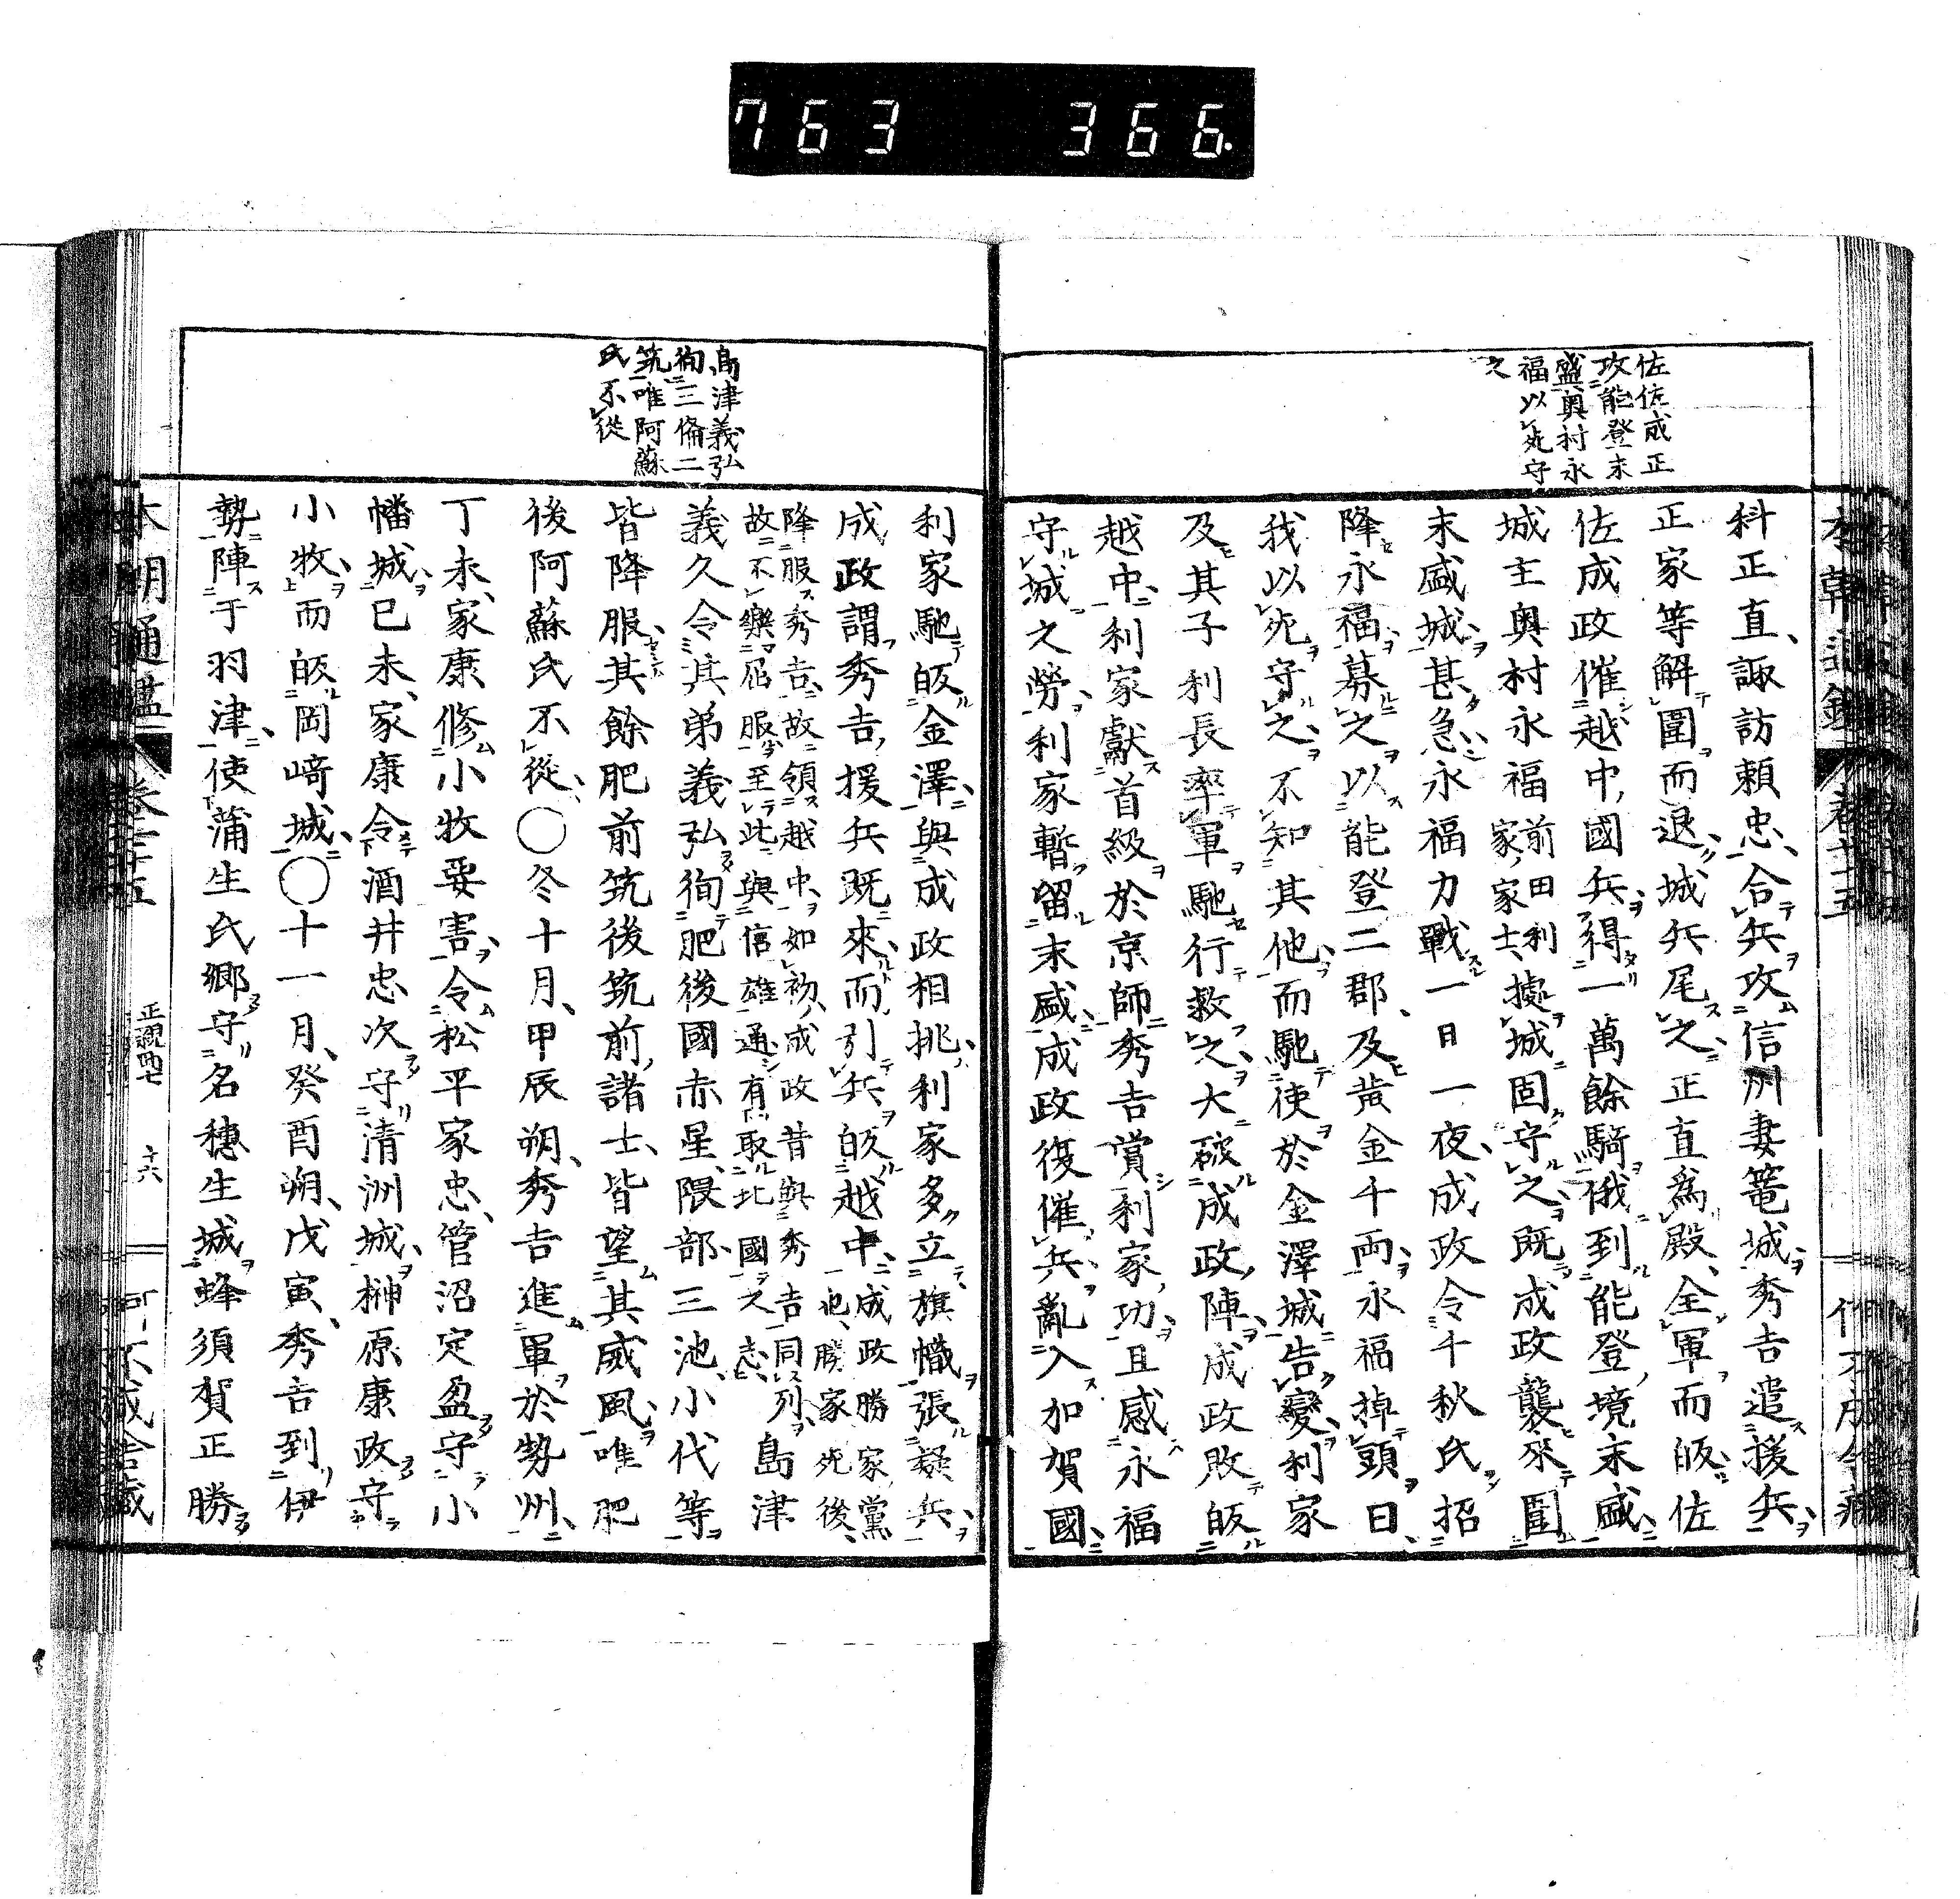 763 366.
佐佐成正
攻能登末
盛奥村永
福以死守
之
科正直諏訪頼忠合兵攻信州妻篭城秀吉遣援兵
正家等解圍而退城兵尾之正直爲殿全軍而皈佐
佐成政催越中國兵得一萬餘騎俄到能登境末盛
城主奥村永福前田利家家士據城固守之既成政襲來圍
末盛城甚急永福力戰一日一夜成政令千秋氏招
降永福募之以能登二郡及黄金千両永福掉頭曰
我以死守之不知其他而馳使於金澤城告變利家
及其子利長率軍馳行救之大破成政陣成政敗皈
越中利家獻首級於京師秀吉賞利家功且感永福
守城之勞利家暫留末盛成政復催兵亂入加賀國
島津義弘
徇三備二
筑唯阿蘇
氏不從
利家馳皈金澤與成政相挑利家多立旗幟張疑兵
成政謂秀吉援兵既來而引兵皈越中成政勝家黨也勝家死後
降服秀吉故領越中如初成政昔與秀吉同列
故不樂屈服至此與信雄通有取北國之志島津
義久令其弟義弘徇肥後國赤星隈部三池小代等
皆降服其餘肥前筑後筑前諸士皆望其威風唯肥
後阿蘇氏不從〇冬十月甲辰朔秀吉進軍於勢州
丁未家康修小牧要害令松平家忠管沼定盈守小
幡城已未家康令酒井忠次守清洲城榊原康政守
小牧而皈岡﨑城〇十一月癸酉朔戊寅秀吉到伊
勢陣于羽津使蒲生氏郷守名穗生城蜂須賀正勝
本朝通鑑
正親町七
十六